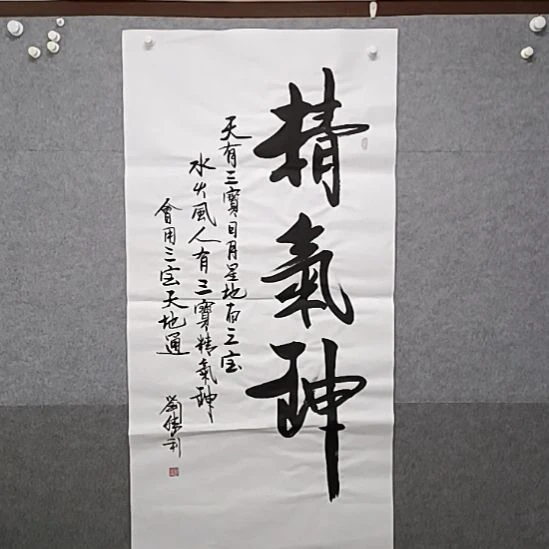 精氣神
天有三寶日月星地有三宝
水火風人有三寶精氣神
會用三宝天地通